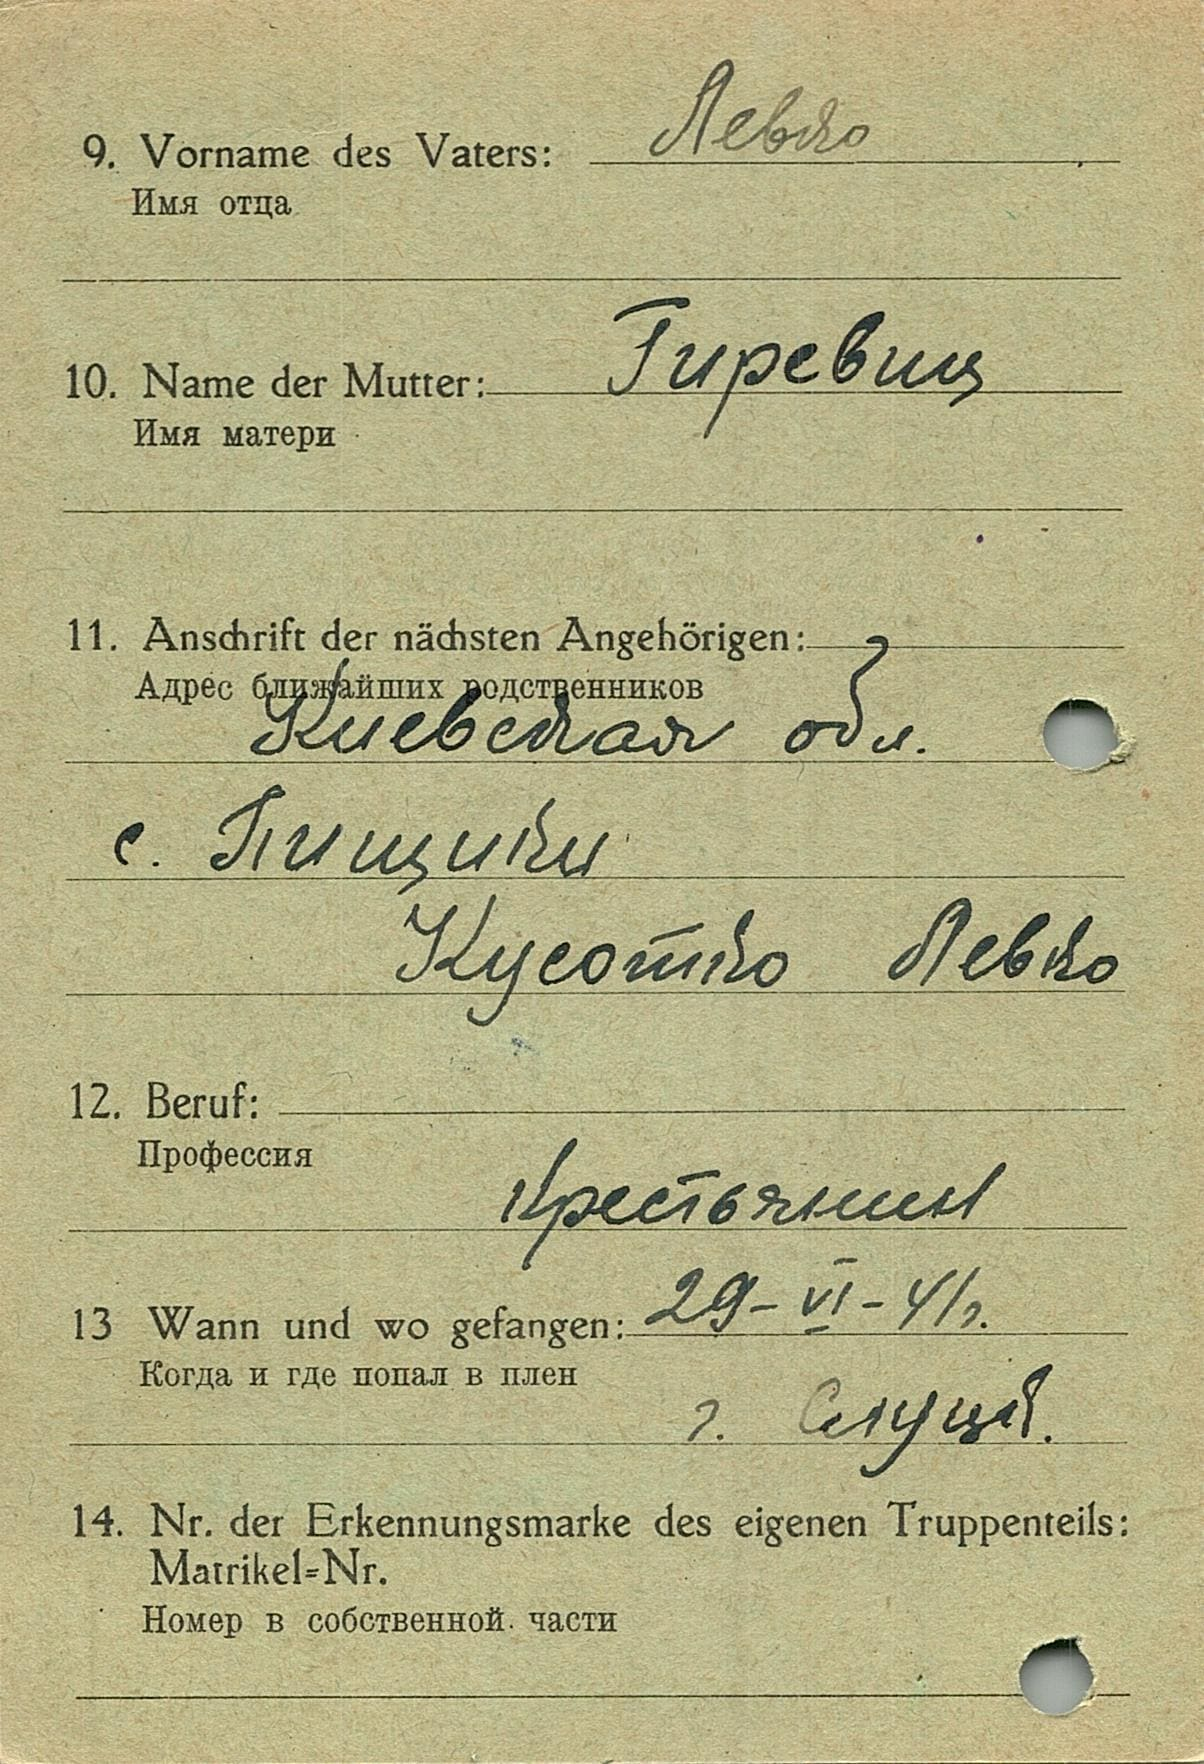 9. Vorname des Vaters: Левко
Имя отца
10. Name der Mutter: Гиревиц
Имя матери
11. Anschrift der nächsten Angehörigen:
Адрес ближайших родственников
Киевская обл.
с. Пищики
Кусотко Левко
12. Beruf:
Профессия
Крестьянин
13 Wann und wo gefangen: 29-VI-41г.
Когда и где попал в плен
г. Слуцк.
14. Nr. der Erkennungsmarke des eigenen Truppenteils:
Matrikel=Nr.
Номер в собственной части